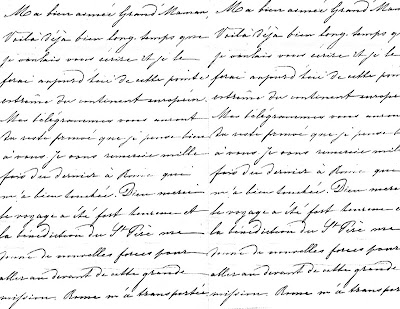 Ma bien aimée Grand'Maman,
Voilà déjà bien long-temps que
je voulais vous écrire et je le
ferai aujourd'hui de cette pointe
extrême du continent européen.
Mes télégrammes vous auront
du reste prouvé que je pense bien
à vous. Je vous remercie mille
fois du dernier à Rome qui
m'a bien touchée. Dieu merci
le voyage a été fort heureux et
la bénédiction du St Père me
donne de nouvelles forces pour
aller au devant de cette grande
mission. Rome m'a transportée
Ma bien aimée Grand'Maman
Voilà déjà bien long-temps que
je voulais vous écrire et je le
ferai aujourd'hui de cette point
extrême du continent europé
Mes télégrammes vous auront
du reste prouvé que je pense b
à vous. Je vous remercie mille
fois du dernier à Rome qui
m'a bien touchée. Dieu merci
le voyage a été fort heureux et
la bénédiction du St Père me
donne de nouvelles forces pour
aller au devant de cette grande
mission. Rome m'a transportée